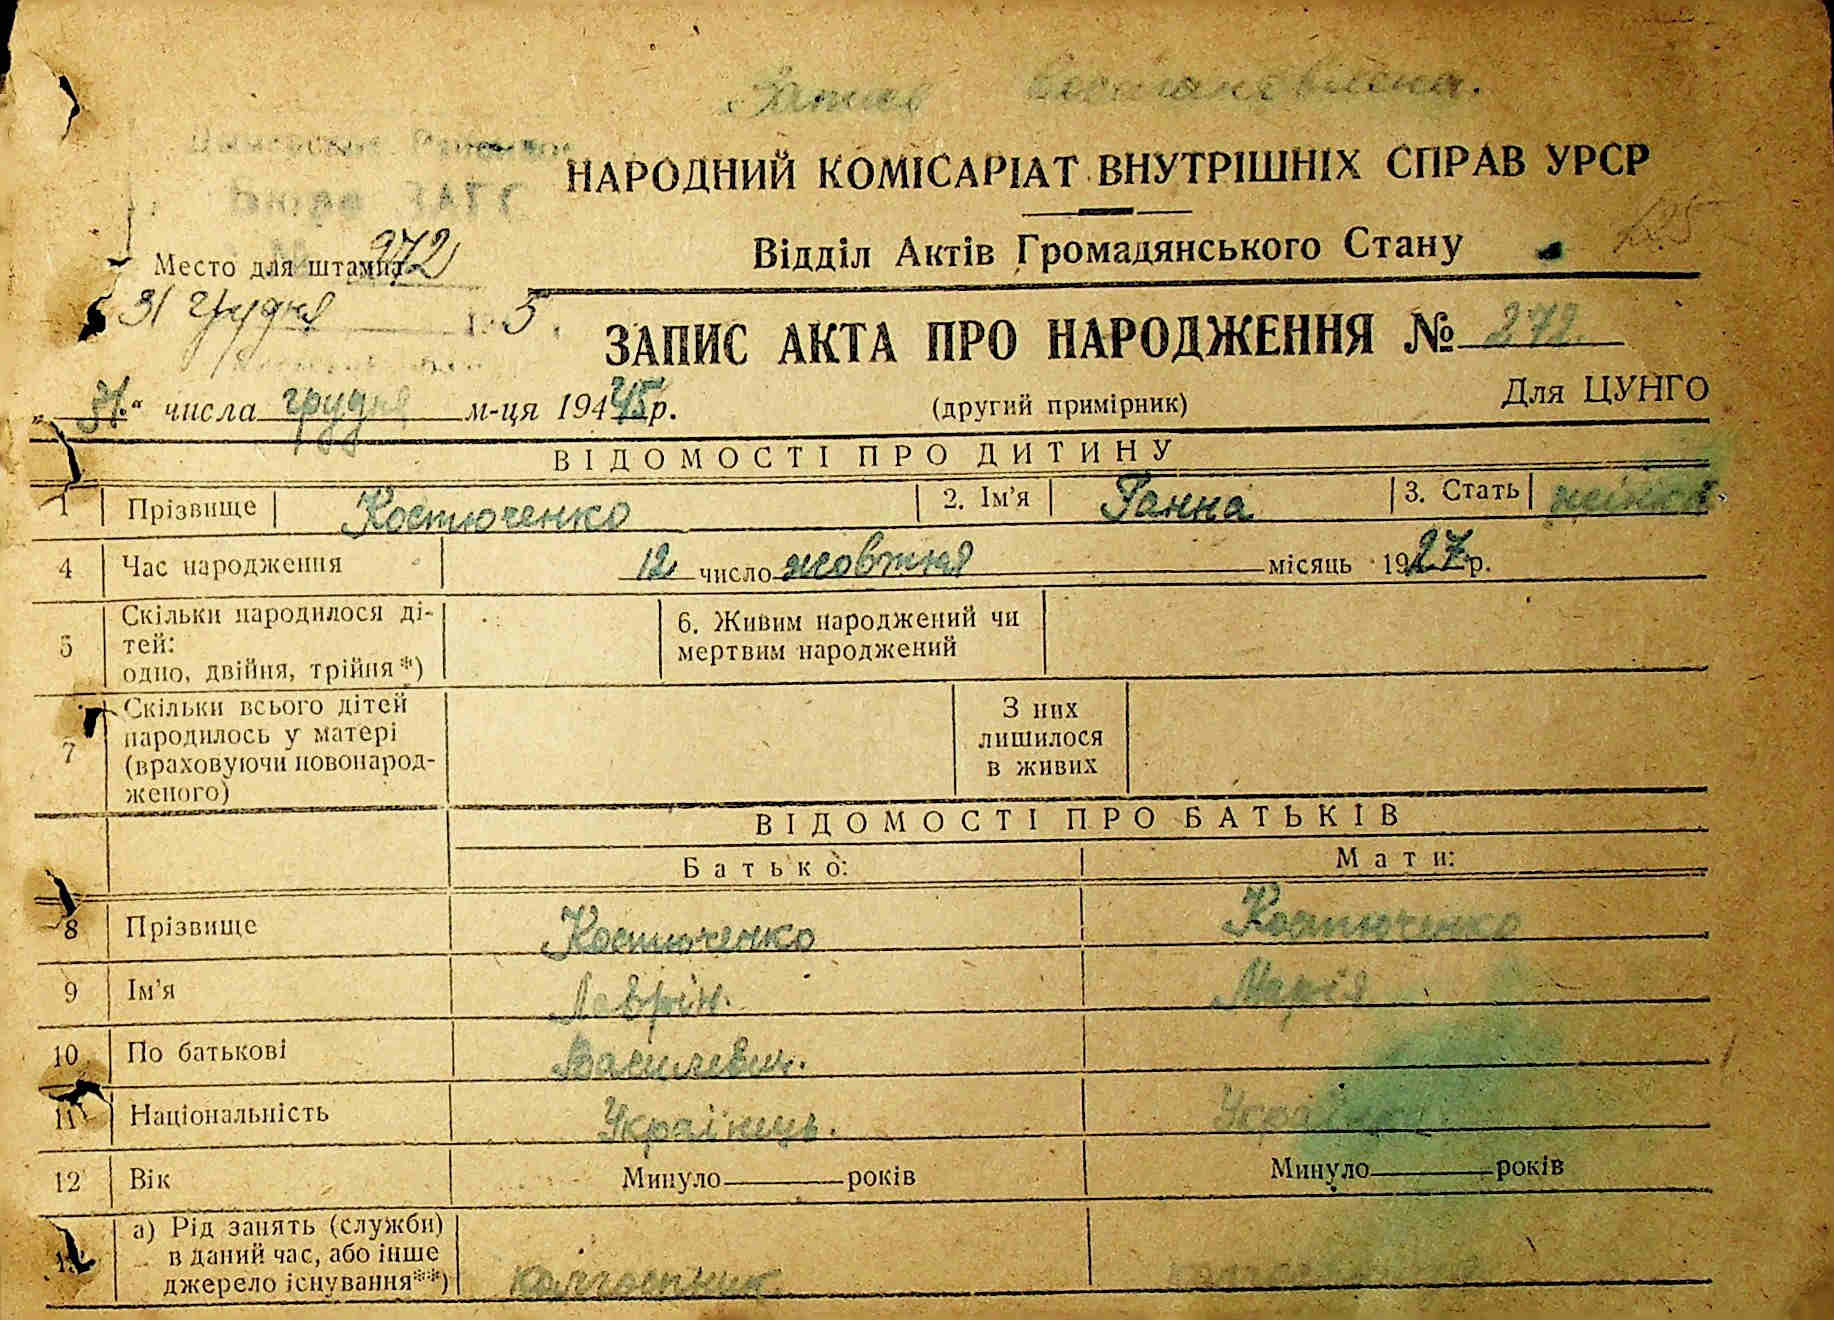 Запис восстановлена.
НАРОДНИЙ КОМІСАРІАТ ВНУТРІШНІХ СПРАВ УРСР
Відділ Актів Громадянського Стану
Место для штампа 272
31 грудня 5
ЗАПИС АКТА ПРО НАРОДЖЕННЯ № 272.
„ 31. “ числа грудня м-ця 194 45 р.
(другий примірник)
Для ЦУНГО
ВІДОМОСТІ ПРО ДИТИНУ
1 Прізвище Костюченко 2. Ім’я Ганна 3. Стать
4 Час народження 12 число жовтня місяць 1927 р.
5 Скільки народилося ді-
тей:
одно, двійня, трійня*)
6. Живим народжений чи
мертвим народжений
7 Скільки всього дітей
народилось у матері
(враховуючи новонарод-
женого)
З них
лишилося
в живих
ВІДОМОСТІ ПРО БАТЬКІВ
Батько: Мати:
8 Прізвище Костюченко Костюченко
9 Ім’я Марія
10 По батькові Василевич.
11 Національність Українець.
12 Вік Минуло років Минуло років
13 а) Рід занять (служби)
в даний час, або інше
джерело існування**) колгоспник